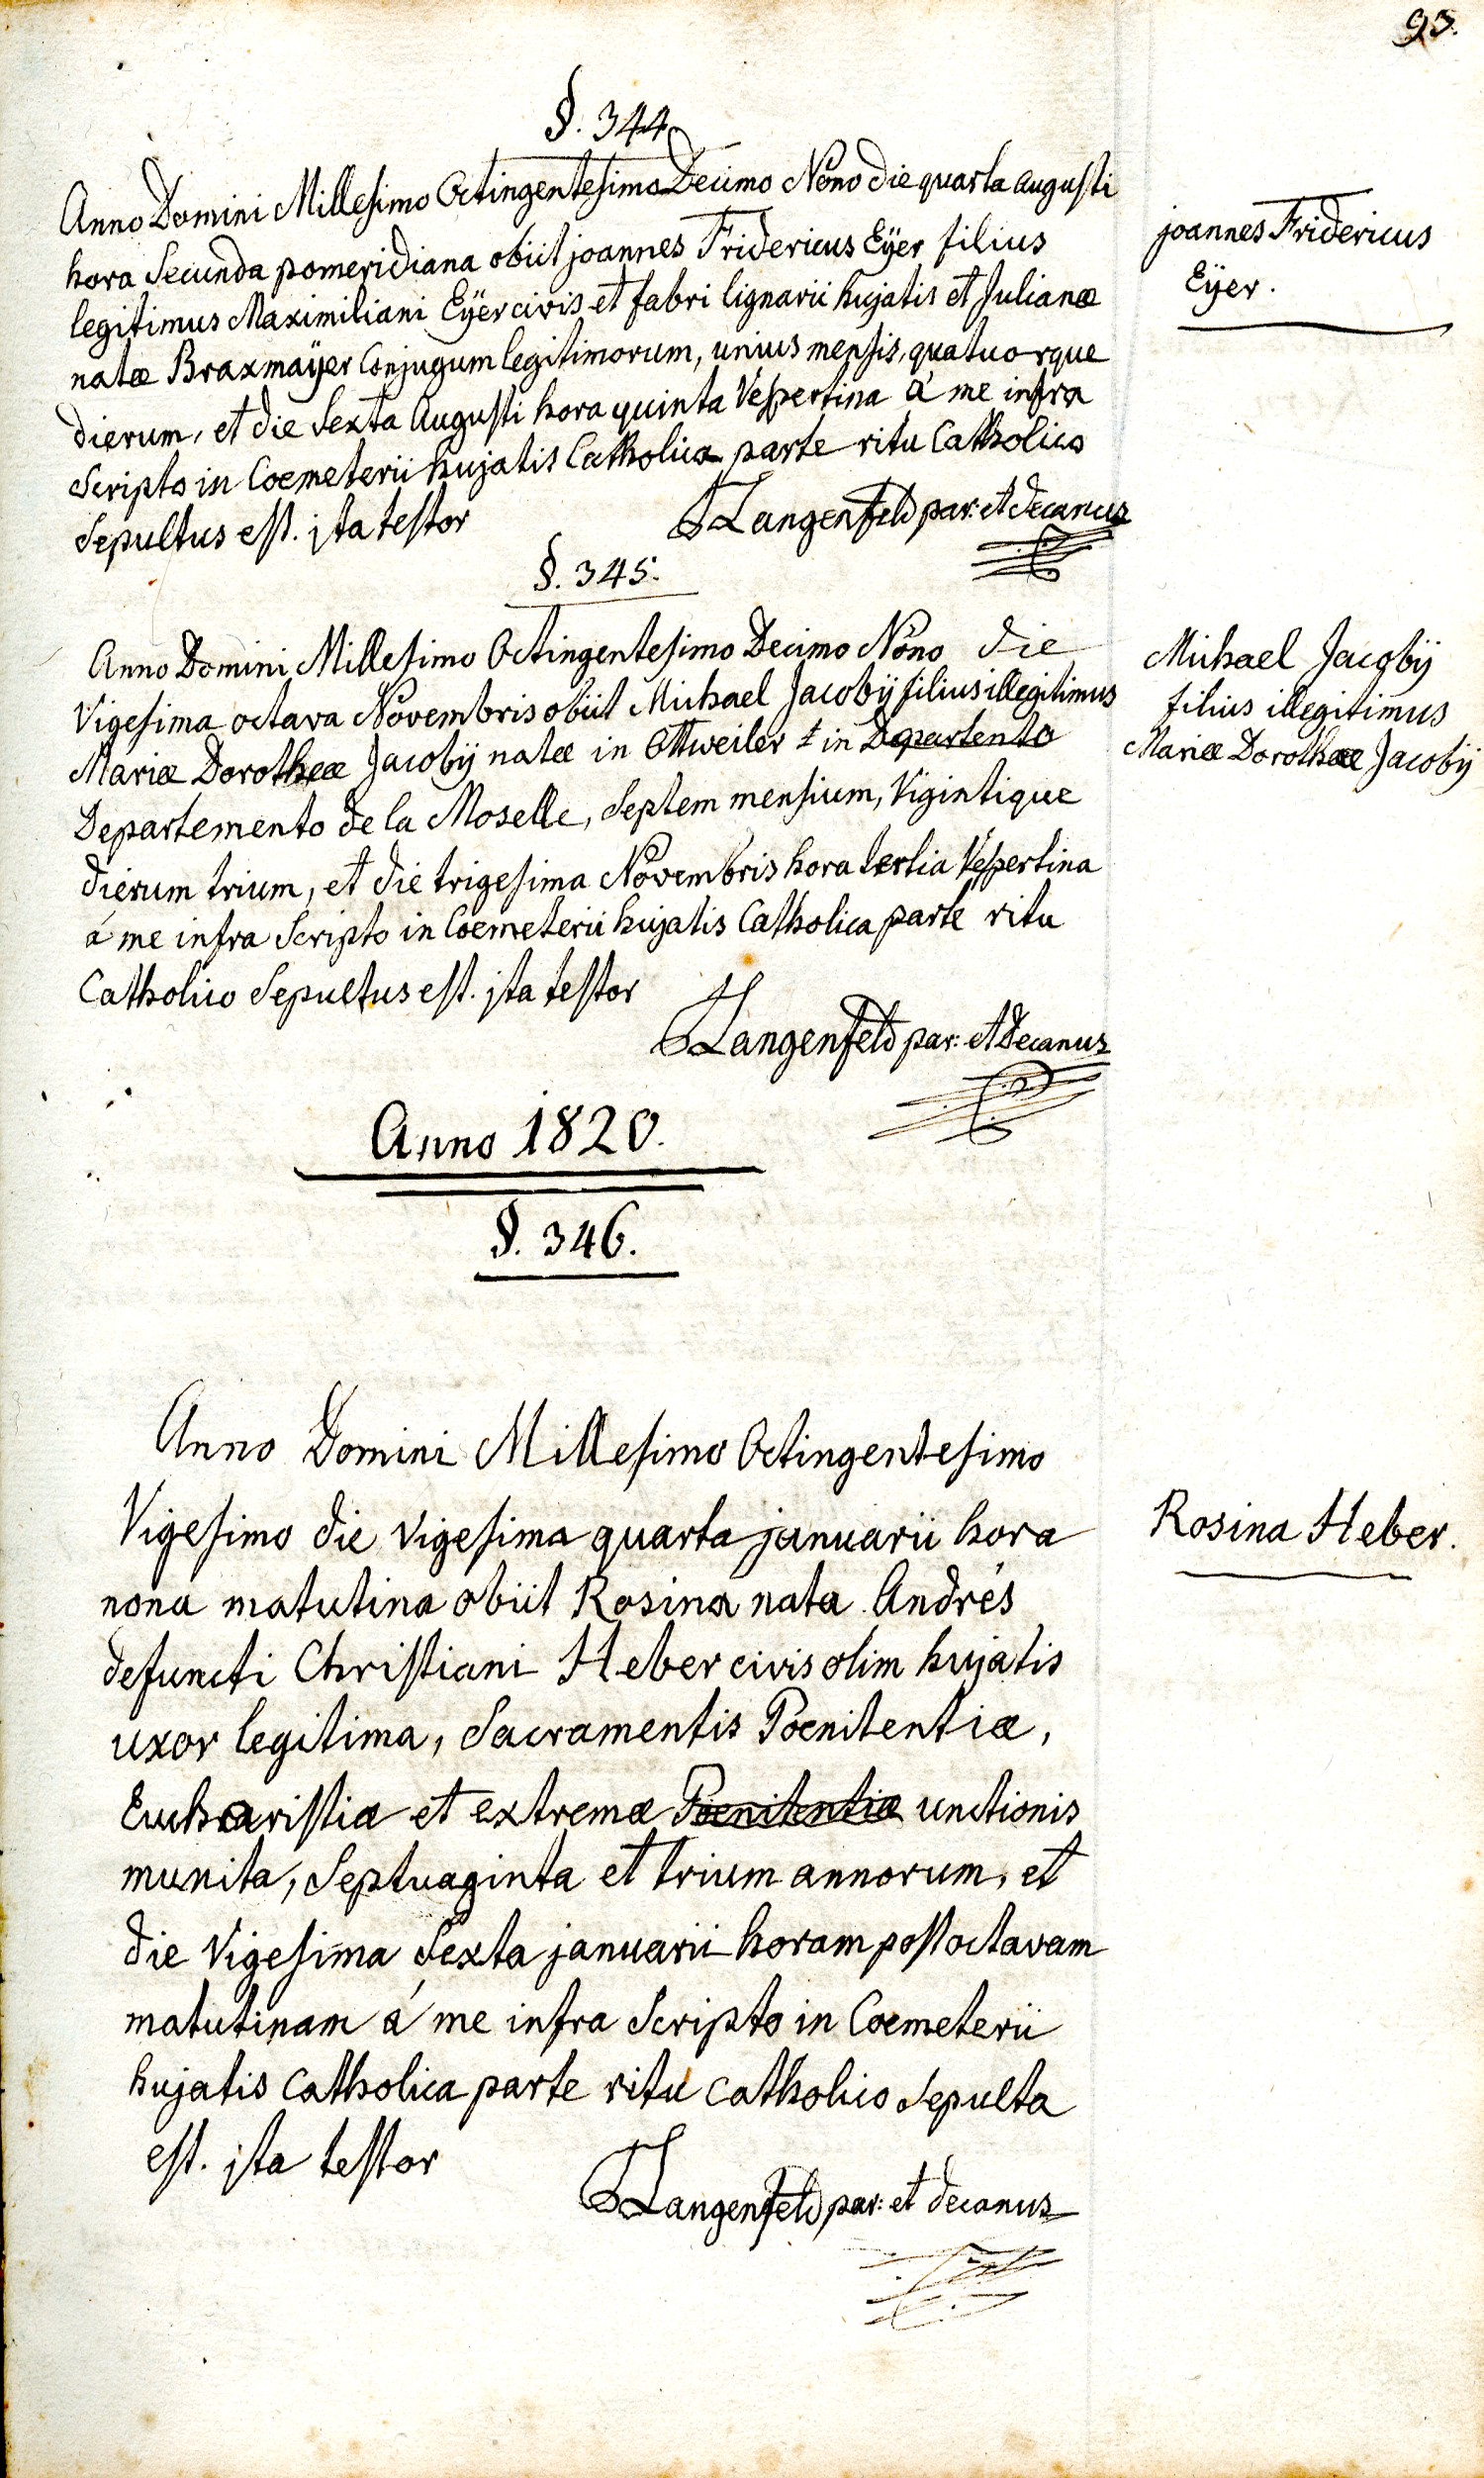 93.
§. 344
Anno Domini Millesimo Octingentesimo Decimo Nono die quarta augusti
hora Secunda pomeridiana obiit joannes Fridericus Eÿer filius
legitimus Maximiliani Eÿer civis et fabri lignarii hujatis et Julianæ
natæ Braxmaÿer Conjugum legitimorum, unius mensis, quatuorque
dierum, et die Sexta Augusti hora quinta Vespertina á me infra
Scripto in Coemeterii hujatis Catholica parte ritu Catholico
Sepultus est. jta testor
Langenfeld par: et decanus
joannes Fridericus
Eÿer.
§. 345.
Anno Domini Millesimo Octingentesimo Decimo Nono die
Vigesima octava Novembris obiit Michael Jacobÿ filius illegitimus
Mariæ Dorotheæ Jacobÿ natæ in Ottweiler in Departento
Departemento de la Moselle, Septem mensium, Vigintique
dierum trium, et die trigesima Novembris hora tertia Vespertina
á me infra Scripto in Coemeterii hujatis Catholica parte ritu
Catholico Sepultus est. jta testor
Langenfeld par: et Decanus
Michael Jacobÿ
filius illegitimus
Mariæ Dorotheæ Jacobÿ
Anno 1820.
§. 346.
Anno Domini Millesimo Octingentesimo
Vigesimo die vigesima quarta januarii hora
nona matutina obiit Rosina nata Andrés
defuncti Christiani Heber civis olim hujatis
uxor legitima, Sacramentis Poenitentiæ,
Eucharistiæ et extremæ Poenitentiæ unctionis
munita, Septuaginta et trium annorum, et
die Vigesima Sexta januarii horam post octavam
matutinam á me infra Scripto in Coemeterii
hujatis Catholica parte ritu catholico Sepulta
est. jta testor
Langenfeld par: et decanus
Rosina Heber.